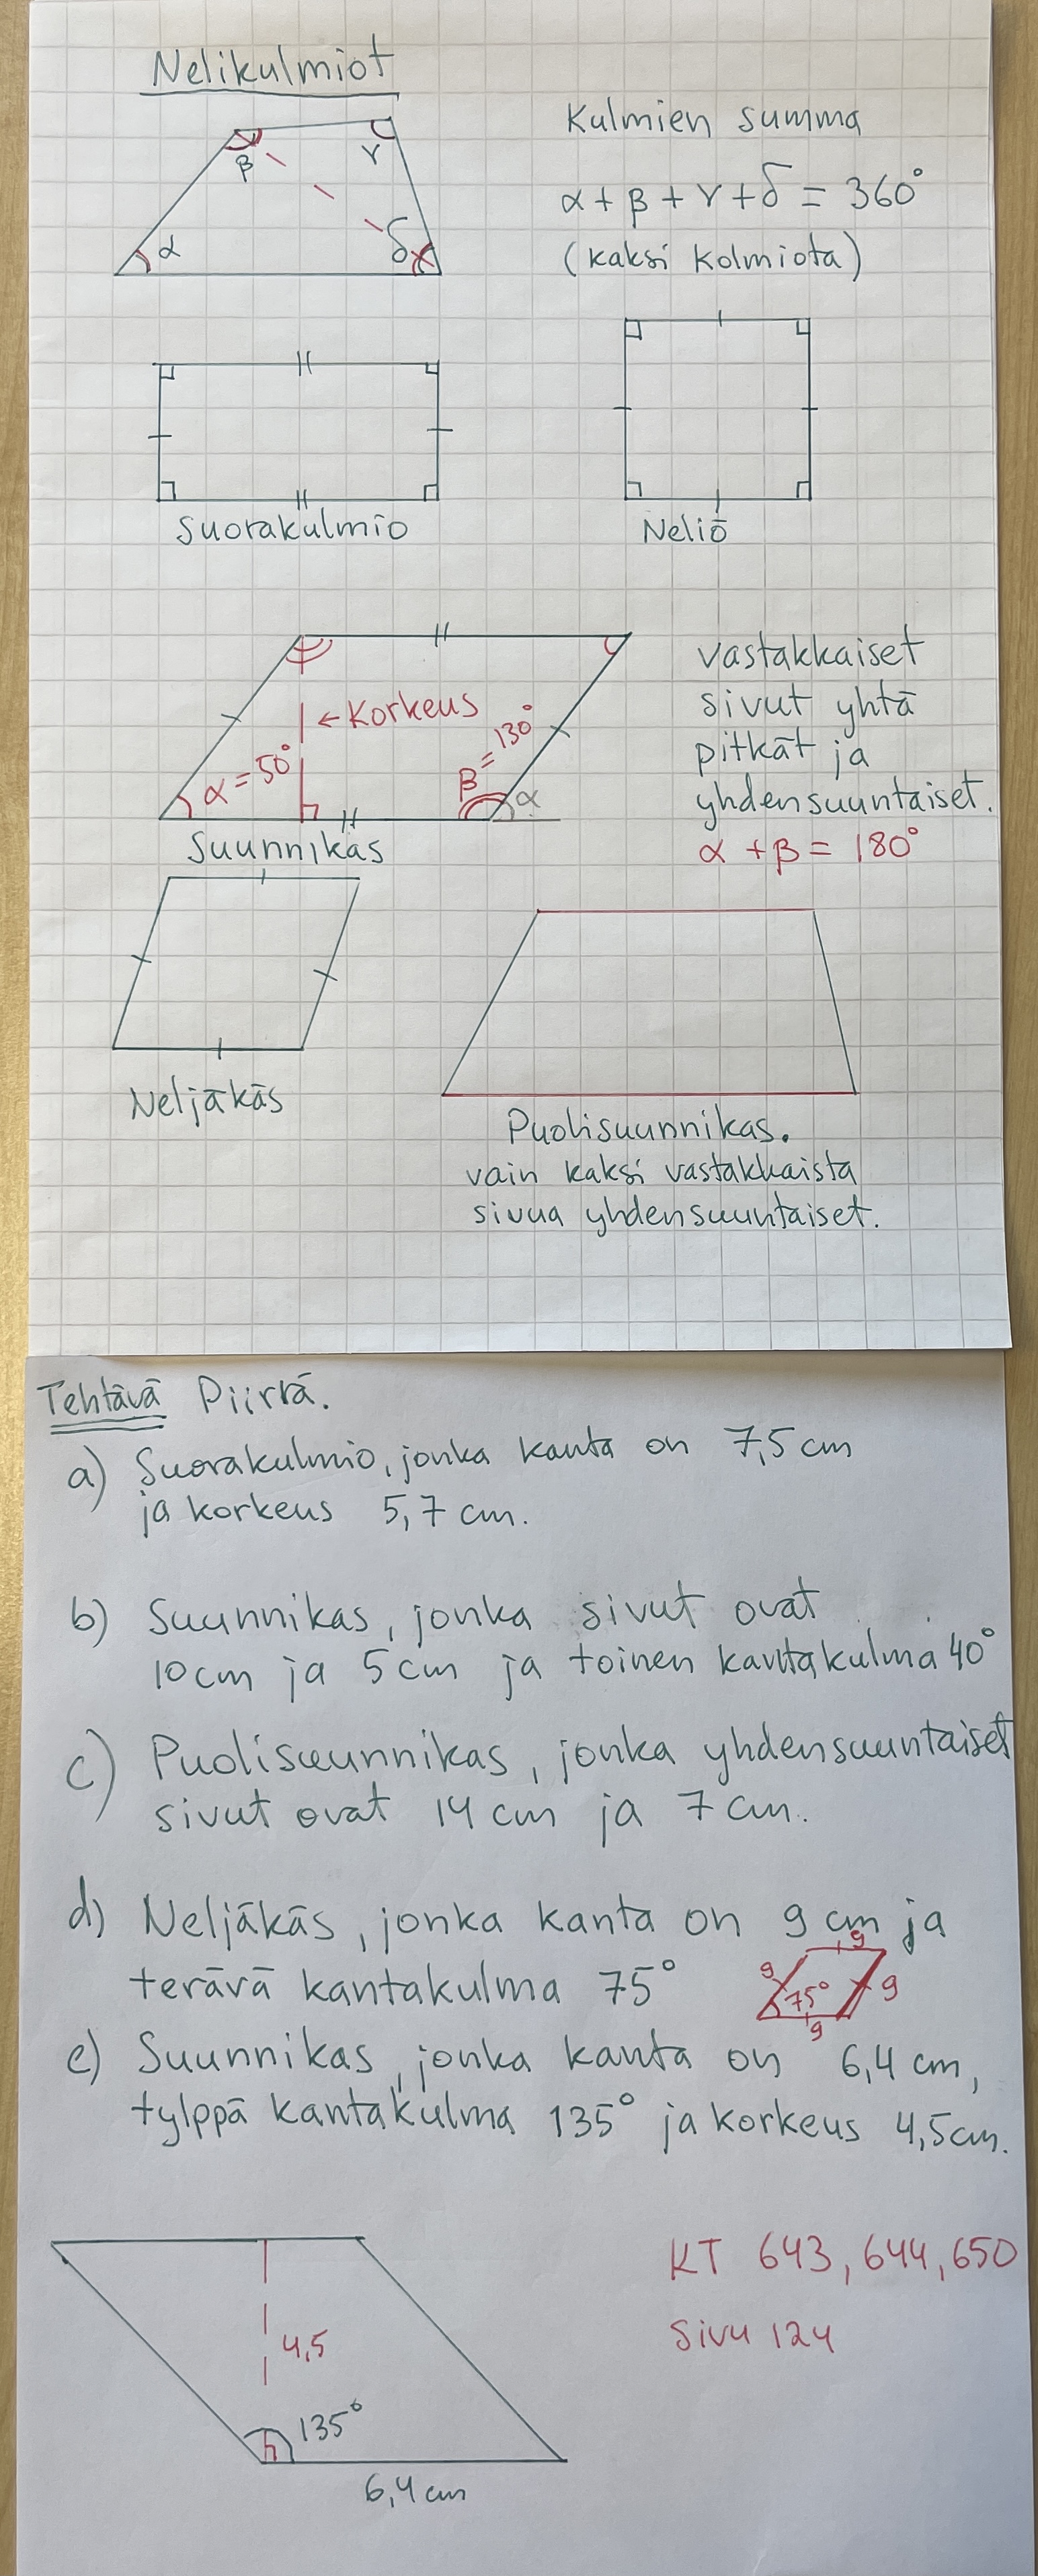 Nelikulmiot
β
γ
α
δ
Kulmien summa
α + β + γ + δ = 360°
(kaksi kolmiota)
Suorakulmio
Neliö
← Korkeus
α = 50°
β = 130°
α
Suunnikas
vastakkaiset
sivut yhtä
pitkät ja
yhdensuuntaiset.
α + β = 180°
Neljäkäs
Puolisuunnikas.
vain kaksi vastakkaista
sivua yhdensuuntaiset.
Tehtävä Piirrä.
a) Suorakulmio, jonka kanta on 7,5 cm
ja korkeus 5,7 cm.
b) Suunnikas, jonka sivut ovat
10 cm ja 5 cm ja toinen kantakulma 40°
c) Puolisuunnikas, jonka yhdensuuntaiset
sivut ovat 14 cm ja 7 cm.
d) Neljäkäs, jonka kanta on 9 cm ja
terävä kantakulma 75°
9
9
75°
9
9
e) Suunnikas, jonka kanta on 6,4 cm,
tylppä kantakulma 135° ja korkeus 4,5 cm.
4,5
135°
6,4 cm
KT 643, 644, 650
Sivu 124